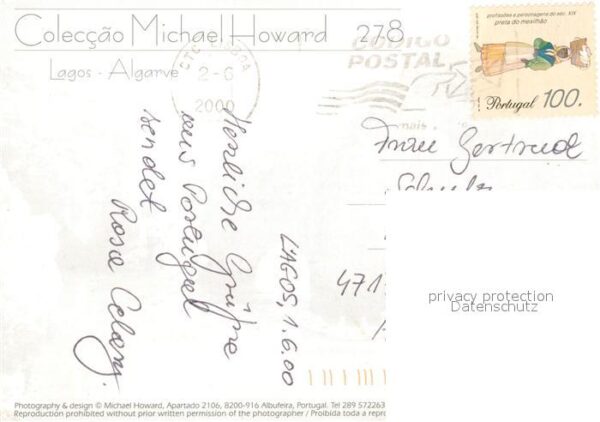 Colecção Michael Howard 278
Lagos - Algarve
2-6
2000
CÓDIGO
POSTAL
profissões e personagens do séc. XIX
preta do mexilhão
Portugal 100.
Herzliche Grüße
aus Portugal
sendet
Rosa
LAGOS, 1.6.00
Frau Gertrud
471
privacy protection
Datenschutz
Photography & design © Michael Howard, Apartado 2106, 8200-916 Albufeira, Portugal. Tel 289 572263
Reproduction prohibited without prior written permission of the photographer / Proibida toda a repr